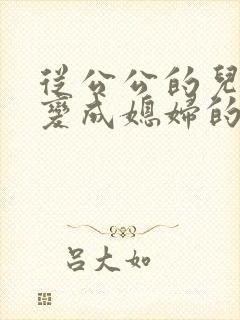 從公公的兒
變成媳婦的
呂大如